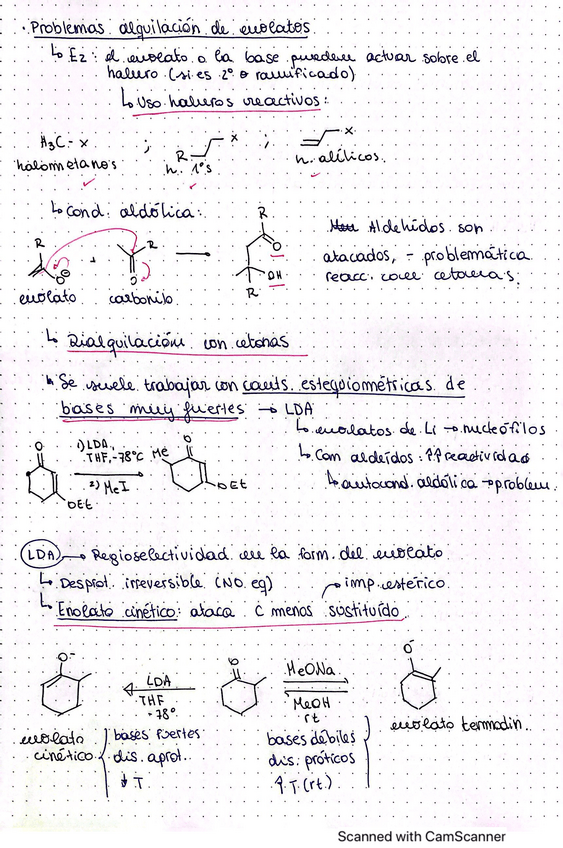 · Problemas alquilación de enolatos
↳ E2: el enolato o la base pueden actuar sobre el
haluro (si es 2º o ramificado)
↳ Uso haluros reactivos:
H3C-x ; R x ; x
halometanos h. 1ºs h. alílicos.
↳ Cond. aldólica:
R R R O
O⊖ + O → OH
R
enolato carbonilo
Aldehídos son
atacados, - problemática
reacc. con cetonas.
↳ Dialquilación con cetonas
↳ Se suele trabajar con cants. estequiométricas de
bases muy fuertes → LDA
↳ enolatos de Li → nucleófilos
↳ Con aldeídos: ↑↑ reactividad
↳ autocond. aldólica → problem.
O 1) LDA, THF, -78ºC Me O
2) MeI
OEt OEt
LDA → Regioselectividad en la form. del enolato
↳ Desprot. irreversible (NO eq) imp. estérico
↳ Enolato cinético: ataca C menos sustituído
O- LDA O MeONa O-
THF MeOH
-78º rt
enolato termodin.
enolato cinético
bases fuertes
dis. aprot.
↓ T
bases débiles
dis. próticos
↑ T (rt.)
Scanned with CamScanner